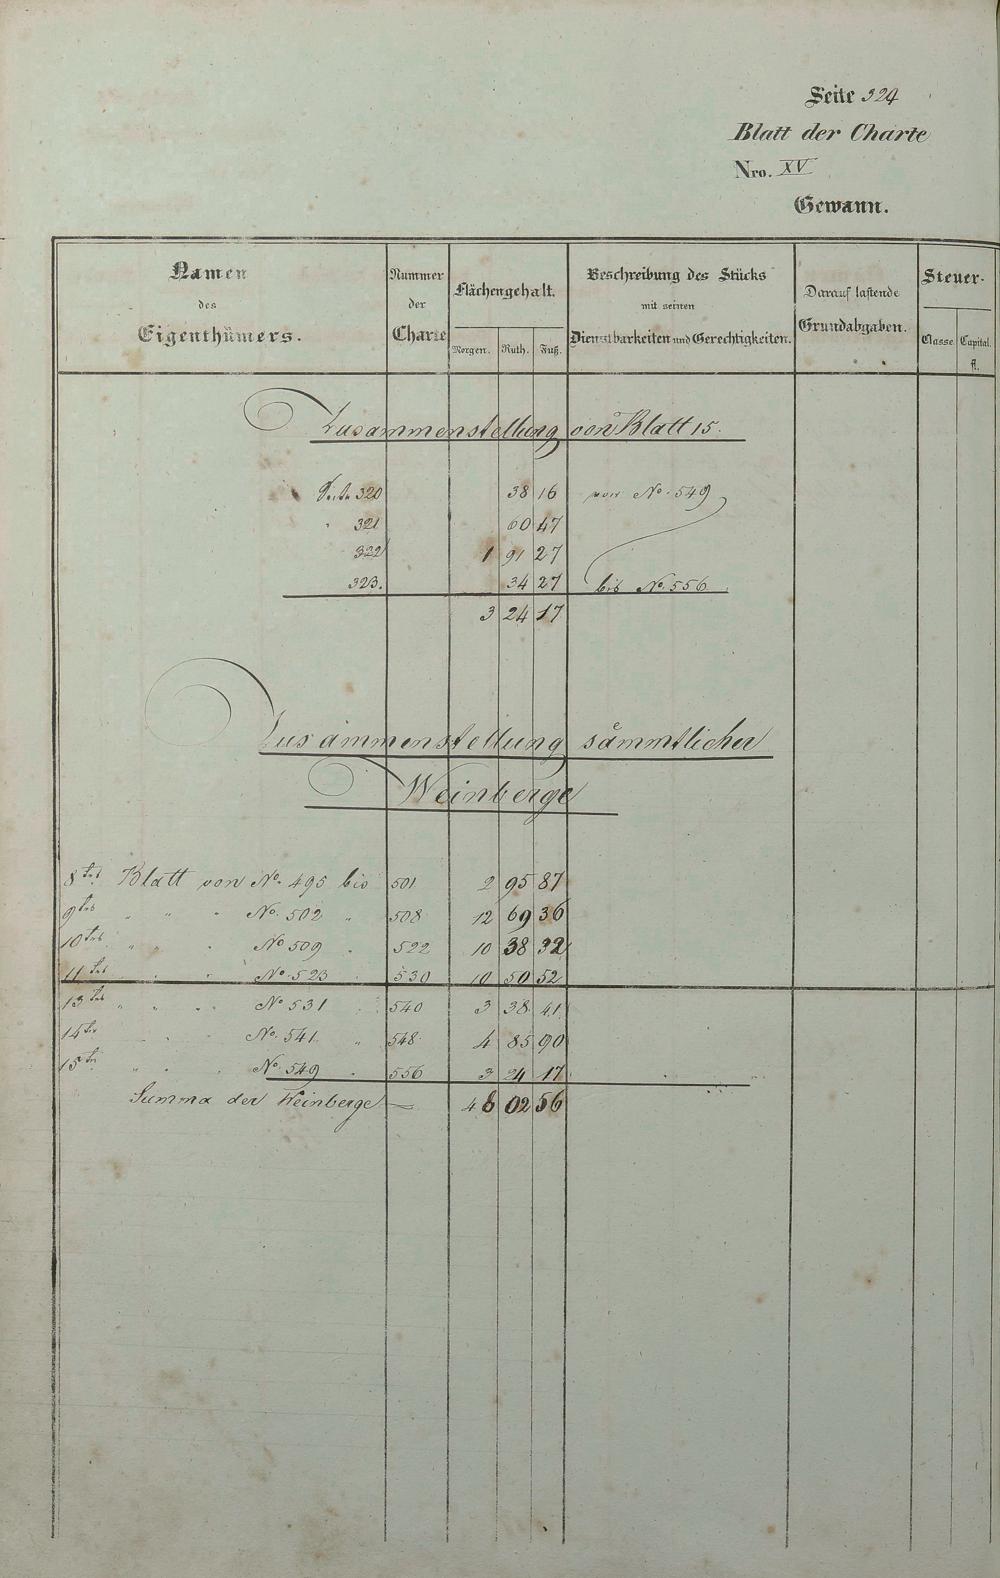 Seite 324
Blatt der Charte
Nro. XV
Gewann.
Namen des Eigenthümers.
Nummer der Charte
Flächengehalt.
Morgen. Ruth. Fuß.
Beschreibung des Stücks mit seinen Dienstbarkeiten und Gerechtigkeiten.
Darauf lastende Grundabgaben.
Steuer-
Classe Capital. fl.
Zusammenstellung von Blatt 15.
Seite 320 38 16 von No. 549
" 321 60 47
322 1 91 27
323. 34 27 bis No. 556
3 24 17
Zusammenstellung sämmtlicher
Weinberge
8tes Blatt von No. 495 bis 501 2 95 87
9tes " " " No. 502 " 508 12 69 36
10tes " " " No 509 " 522 10 38 32
11tes " " No. 523 " 530 10 50 52
13tes " " " " No 531 " 540 3 38 41
14tes " " " No. 541. " 548 4 85 90
15tes " " " No. 549 " 556 3 24 17
Summa der Weinberge — 48 02 56